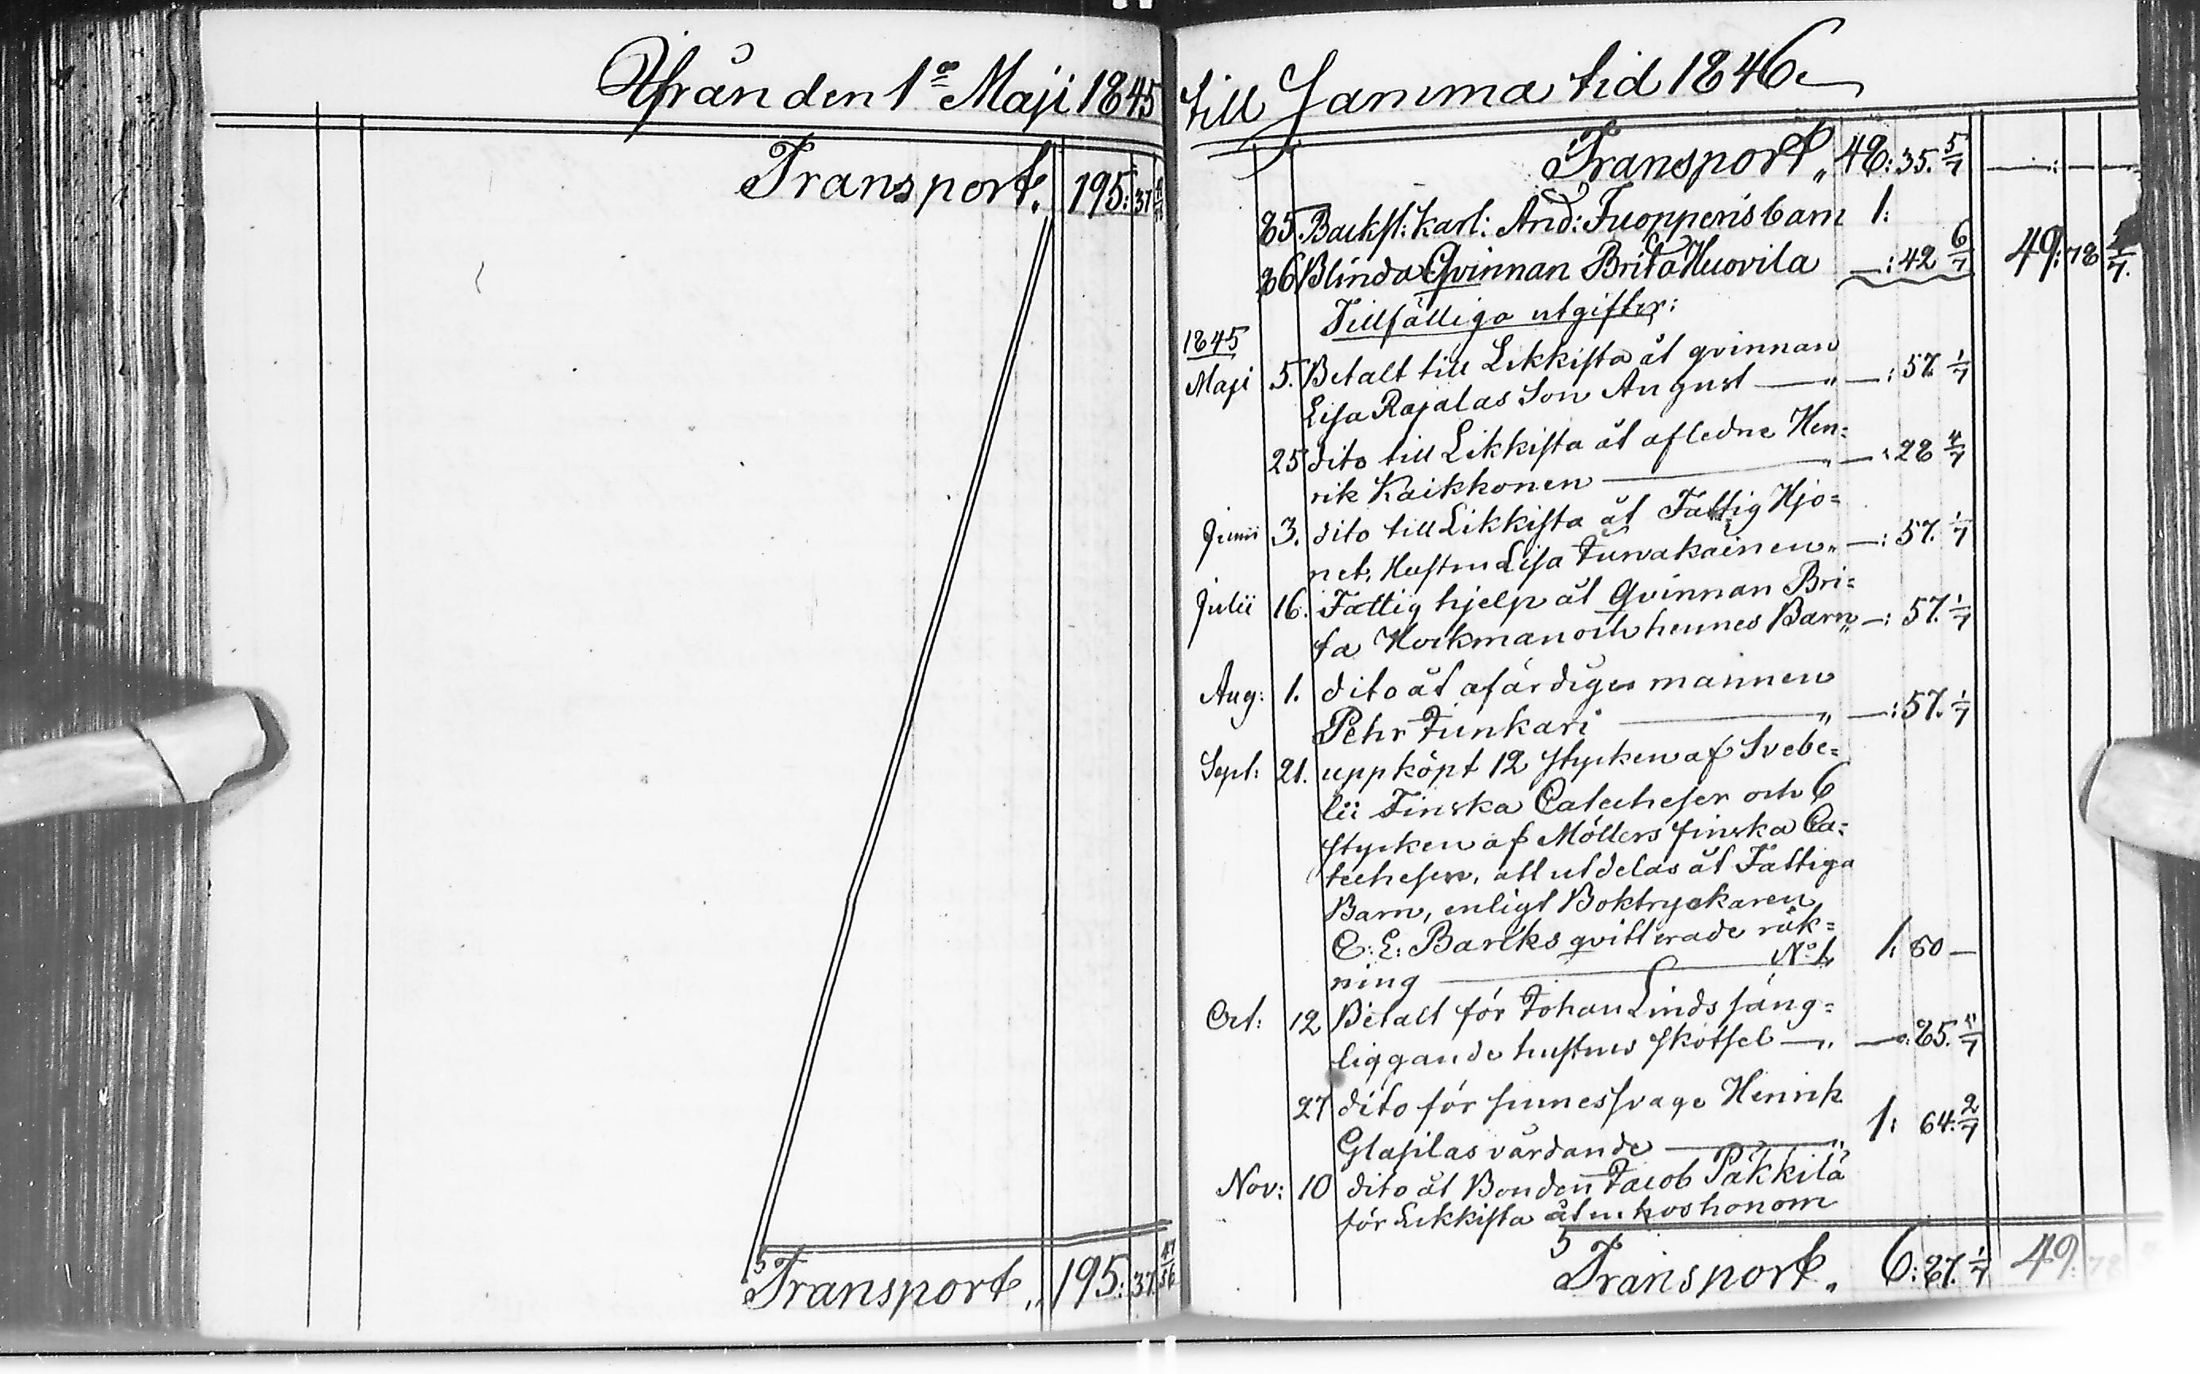 Ifrån den 1a Maji 1845
Transport. 195: 37
Transport „ 195: 37. 47/56
till Samma tid 1846.
Transport „ 48: 35. 5/7 — : —
85. Backst: karl: And: Tuopperis barn 1:
86. Blinda Qvinnan Brita Huovila — : 42 6/7 49: 78 4/7.
Tillfälliga utgifter:
1845
Maji 5. Betalt till Likkista åt qvinnan
Lisa Rajalas Son August — „ — : 57. 1/7
25 dito till Likkista åt afledne Hen=
rik Kaikkonen — „ — : 28 4/7
Junii 3. dito till Likkista åt Fattig Hjo=
net, Hustru Lisa Turvakainen „ — : 57. 1/7
Julii 16. Fattig hjelp åt Qvinnan Bri=
ta Hockman och hennes Barn „ — : 57. 1/7
Aug: 1. dito åt ofärdiges mannen
Pehr Junkari — „ — : 57. 1/7
Sept: 21. uppköpt 12 stycken af Svebe=
lii Finska Catecheser och 6
stycken af Möllers finska Ca=
techeser, att utdelas åt Fattiga
Barn, enligt Boktryckaren
C: E: Barcks qvitterade räk=
ning — No 1. 1: 80 —
Oct: 12 Betalt för Johan Linds säng=
liggande hustrus skötsel — „ — : 85. 5/7
27 dito för sinnessvage Henrik
Glasilas vårdande — „ 1: 64. 2/7
Nov: 10 dito åt Bonden Jacob Päkkilä
för Likkista åt hos honom
5 Transport „ 6: 87. 1/7 49: 78